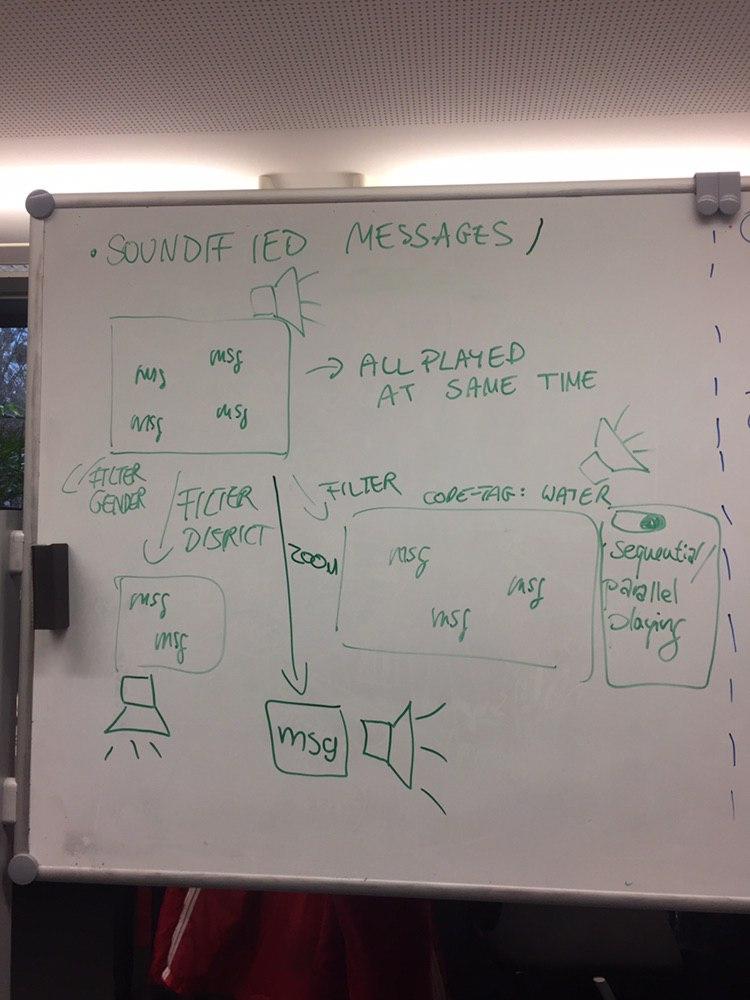 • SOUNDIFIED MESSAGES /
msg
msg
msg
msg
→ ALL PLAYED
AT SAME TIME
FILTER
GENDER
FILTER
DISTRICT
ZOOM
FILTER
CODE-TAG: WATER
msg
msg
msg
msg
msg
Sequential/
parallel
playing
msg